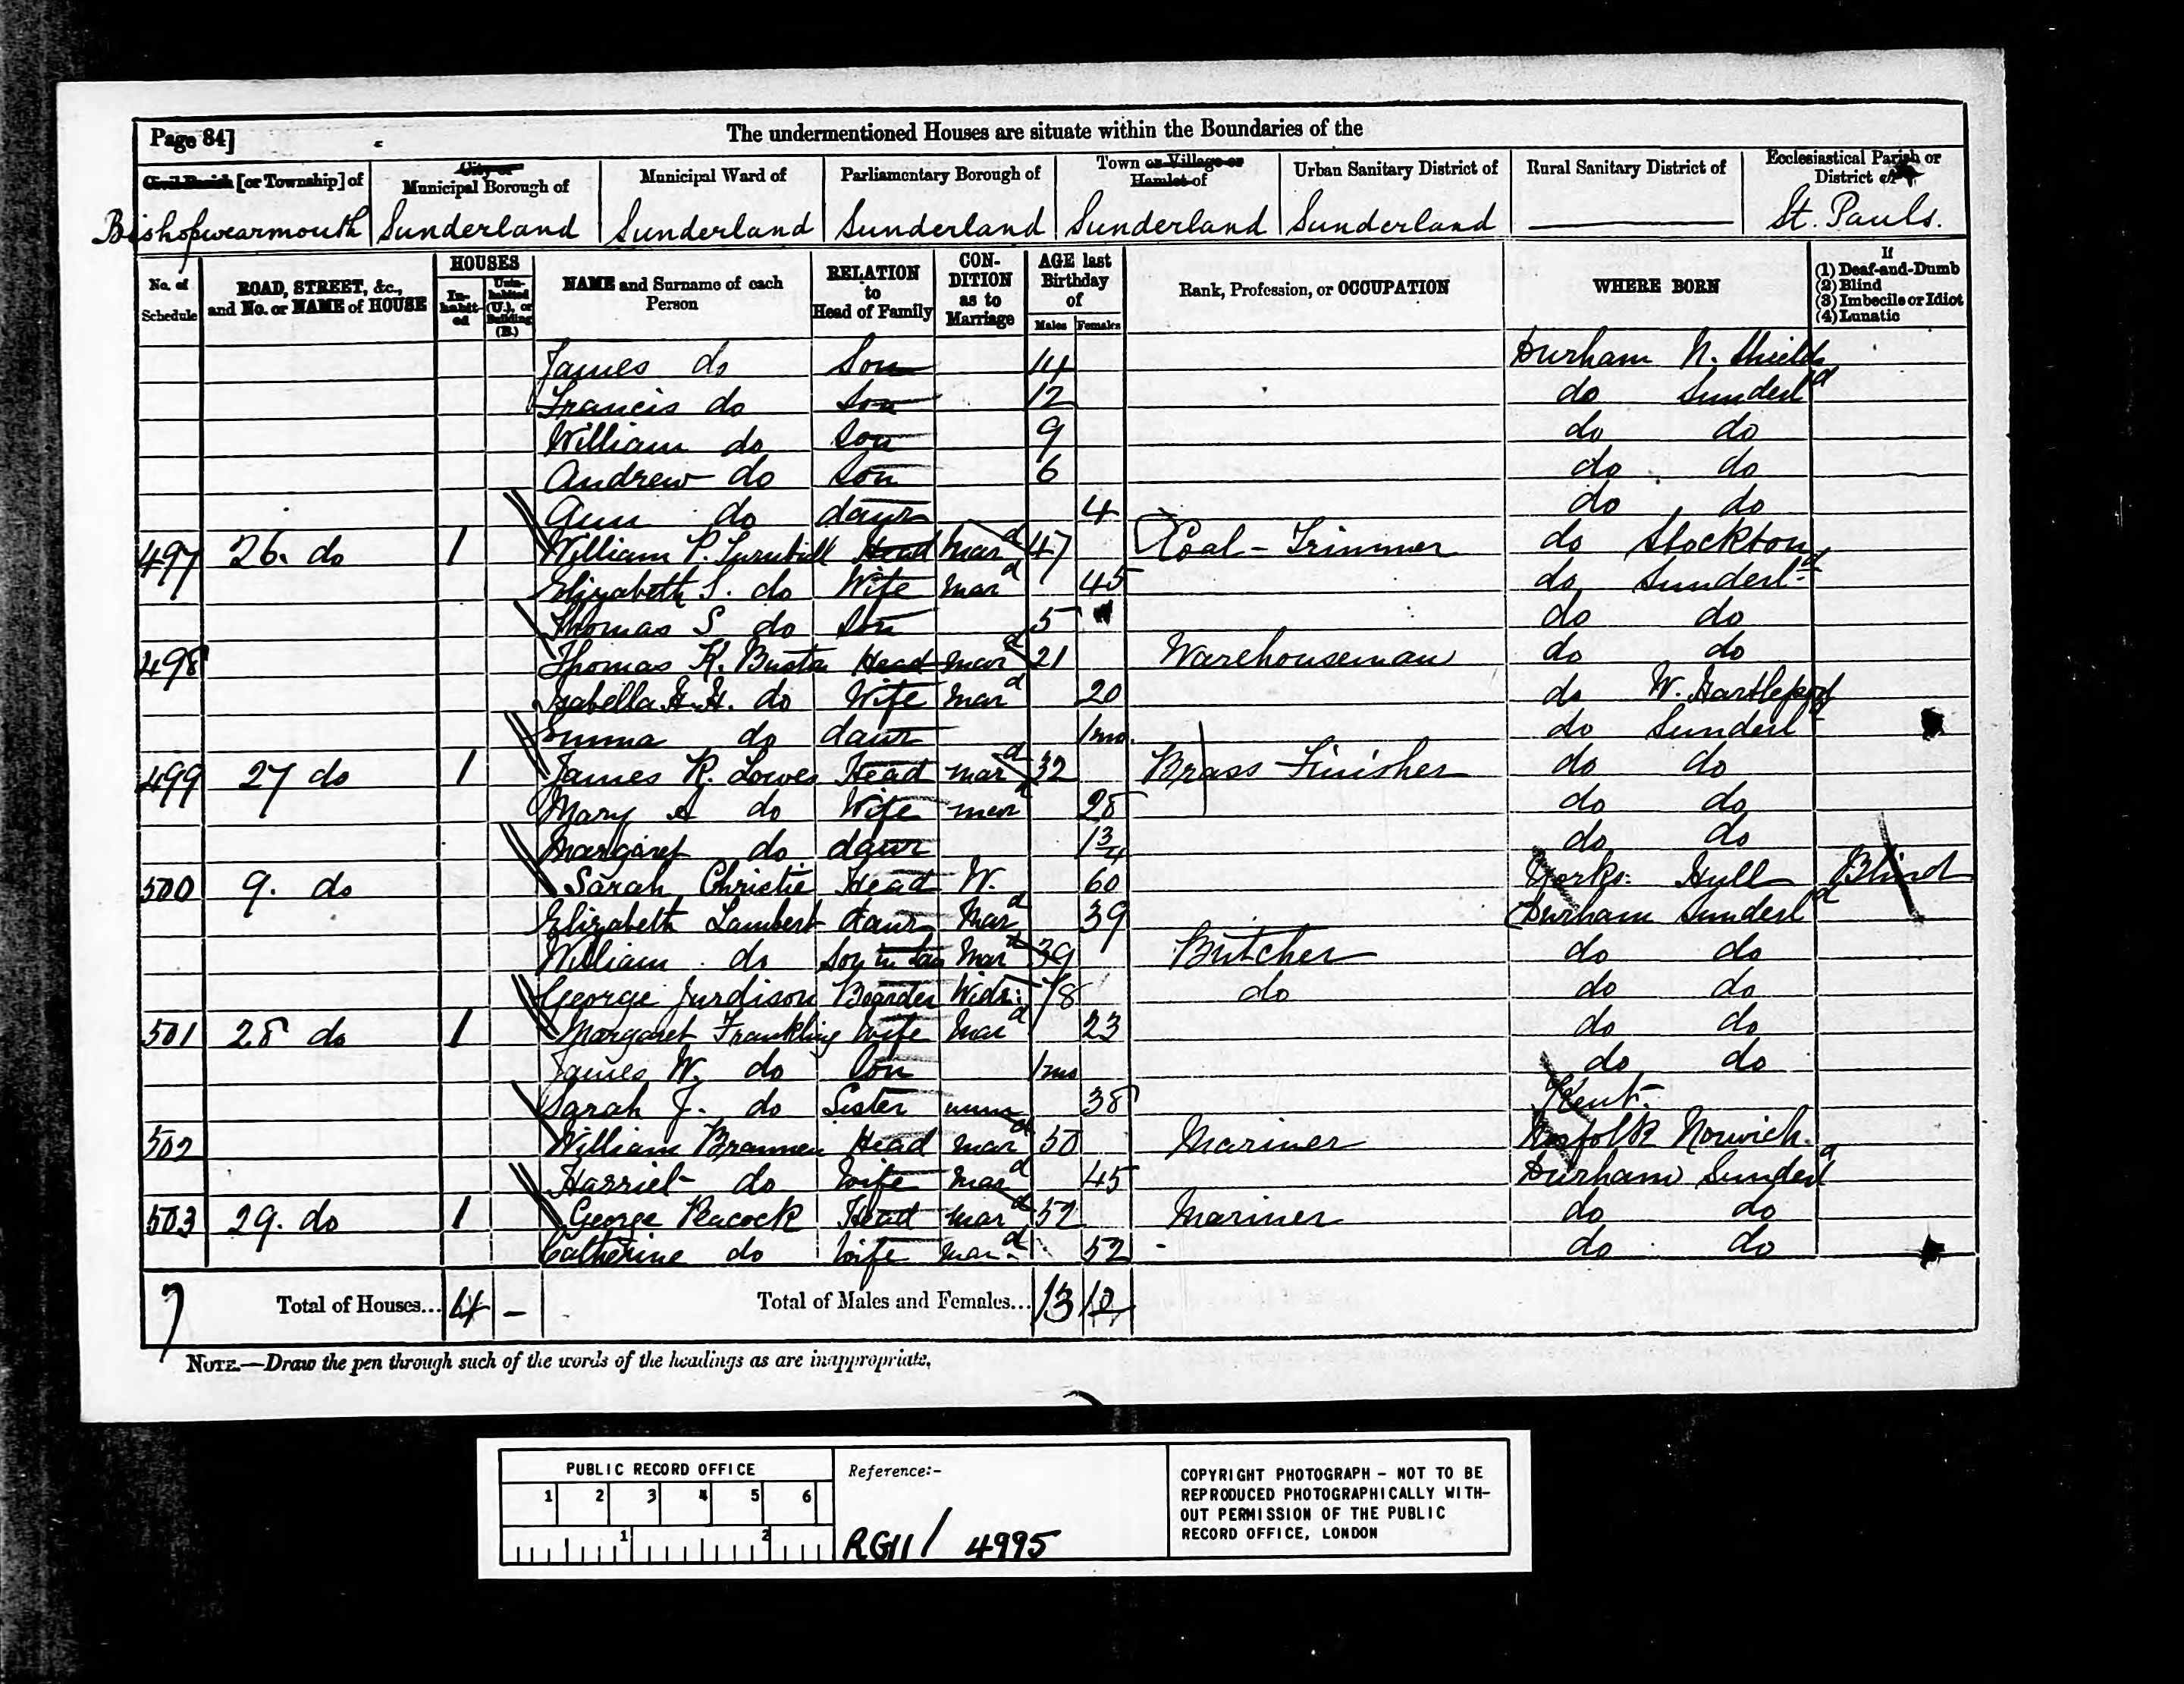 Page 84]
The undermentioned Houses are situate within the Boundaries of the
Civil Parish [or Township] of
City or Municipal Borough of
Municipal Ward of
Parliamentary Borough of
Town or Village or Hamlet of
Urban Sanitary District of
Rural Sanitary District of
Ecclesiastical Parish or District of
Bishopwearmouth Sunderland Sunderland Sunderland Sunderland Sunderland St. Pauls.
No. of Schedule
ROAD, STREET, &c., and No. or NAME of HOUSE
HOUSES
In-habit-ed
Unin-habited (U.), or Building (B.)
NAME and Surname of each Person
RELATION to Head of Family
CON-DITION as to Marriage
AGE last Birthday of
Males Females
Rank, Profession, or OCCUPATION
WHERE BORN
If
(1) Deaf-and-Dumb
(2) Blind
(3) Imbecile or Idiot
(4) Lunatic
James do Son 14 Durham N. Shields
Francis do Son 12 do Sunderld
William do Son 9 do do
Andrew do Son 6 do do
Ann do daur 4 do do
497 26. do 1 William P. Turnbull Head Mard 47 Coal-Trimmer do Stockton
Elizabeth S. do Wife Mard 45 do Sunderld
Thomas S do Son 5 do do
498 Thomas K. Buston Head Mard 21 Warehouseman do do
Isabella H. H. do Wife Mard 20 do W. Hartlepool
Emma do daur 1mo. do Sunderld
499 27 do 1 James R. Lowes Head mard 32 Brass Finisher do do
Mary A do Wife mard 28 do do
Margaret do daur 1 3/4 do do
500 9. do Sarah Christie Head W. 60 Yorks: Hull Blind
Elizabeth Lambert daur Mard 39 Durham Sunderld
William do Son in law Mard 39 Butcher do do
George Jurdison Boarder Widr: 78 do do do
501 28 do 1 Margaret Frankling Wife Mard 23 do do
James W. do Son 1mo do do
Sarah J. do Sister unm 38 Kent.
502 William Brannen Head mard 50 Mariner Norfolk Norwich.
Harriet do Wife Mard 45 Durham Sunderld
503 29. do 1 George Peacock Head mard 52 Mariner do do
Catherine do Wife mard 52 do do
7 Total of Houses... 4 - Total of Males and Females... 13 12
NOTE.—Draw the pen through such of the words of the headings as are inappropriate.
PUBLIC RECORD OFFICE
1 2 3 4 5 6
1 2
Reference:-
RG11/ 4995
COPYRIGHT PHOTOGRAPH - NOT TO BE
REPRODUCED PHOTOGRAPHICALLY WITH-
OUT PERMISSION OF THE PUBLIC
RECORD OFFICE, LONDON